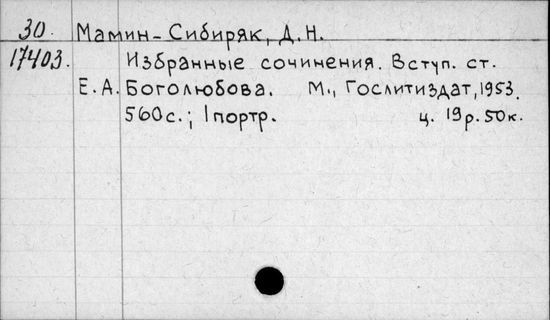 30. Мамин-Сибиряк, Д.Н.
17403. Избранные сочинения. Вступ. ст.
Е.А. Боголюбова. М., Гослитиздат, 1953.
560с.; 1портр. ц. 19р.50к.